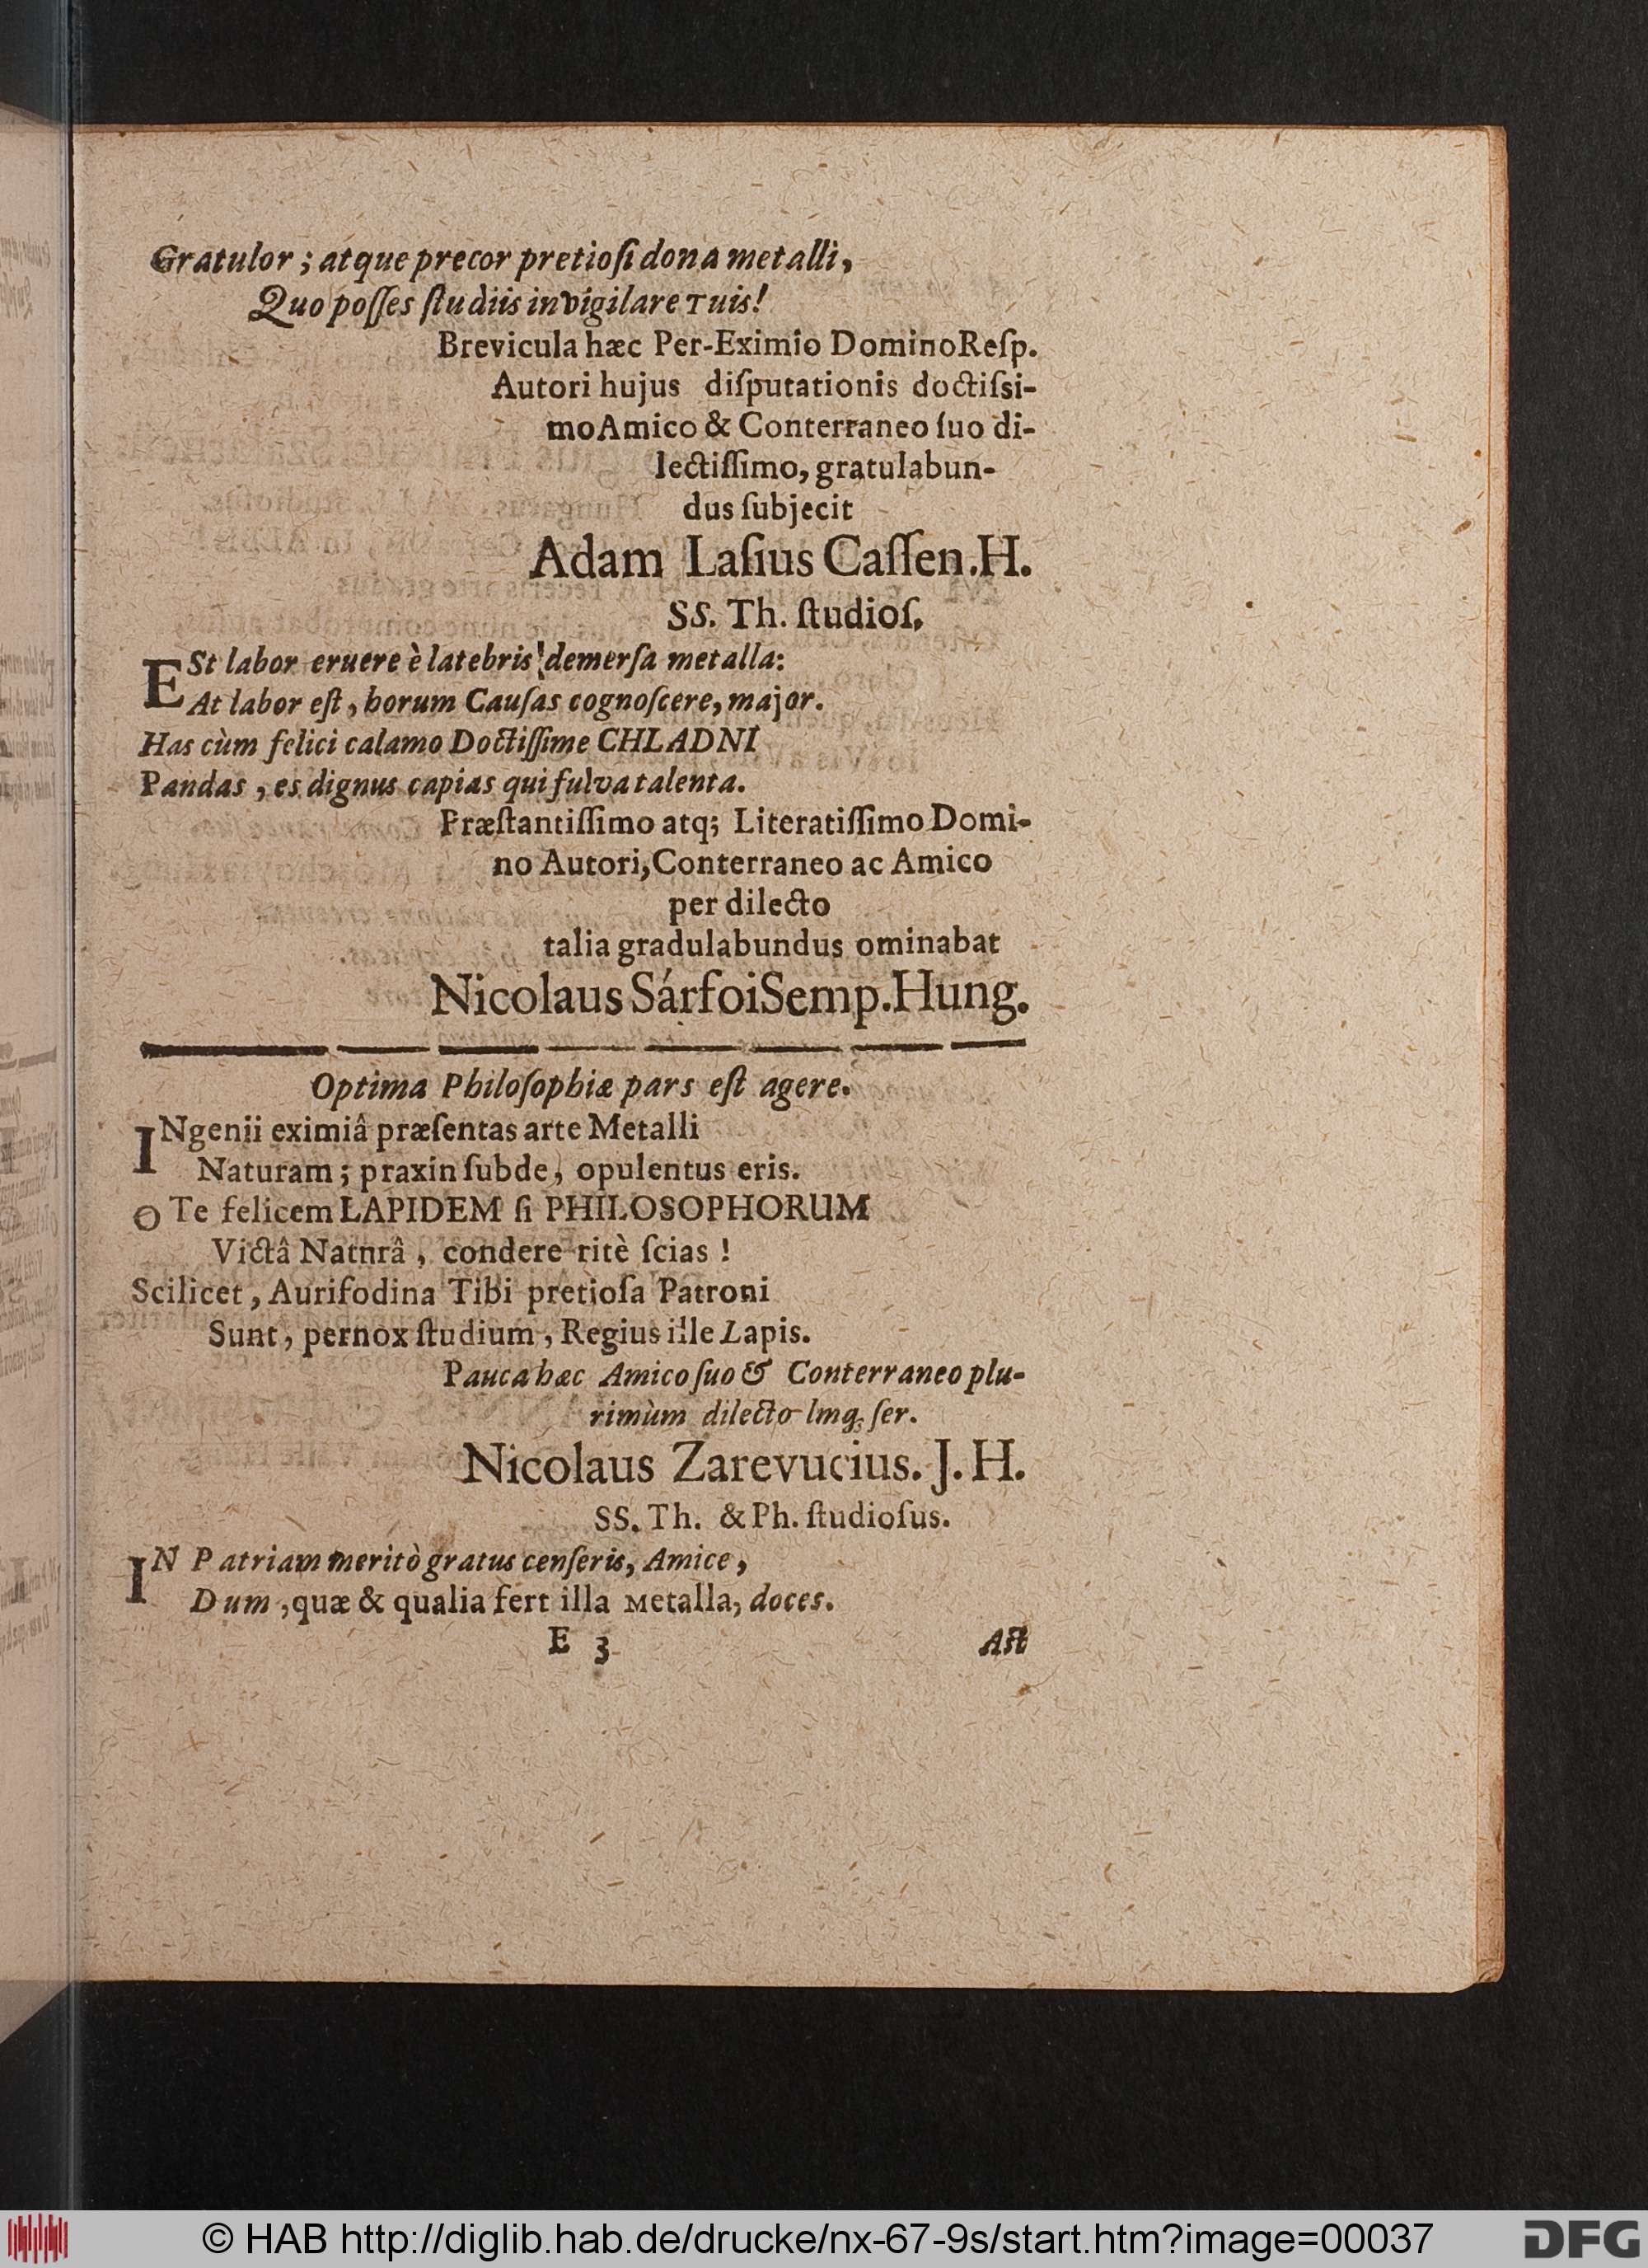 Gratulor ; atque precor pretioſi dona metalli,
Quo poſſes ſtudiis invigilare Tuis!
Brevicula hæc Per-Eximio Domino Reſp.
Autori hujus diſputationis doctiſsi-
mo Amico & Conterraneo ſuo di-
lectiſſimo, gratulabun-
dus ſubjecit
Adam Laſius Caſſen. H.
SS. Th. ſtudioſ.
ESt labor eruere è latebris demerſa metalla:
At labor eſt, horum Cauſas cognoſcere, major.
Has cùm felici calamo Doctiſſime CHLADNI
Pandas, es dignus capias qui fulva talenta.
Præſtantiſſimo atq; Literatiſſimo Domi-
no Autori, Conterraneo ac Amico
per dilecto
talia gradulabundus ominabat
Nicolaus Sárfoi Semp. Hung.
Optima Philoſophiæ pars eſt agere.
INgenii eximiâ præſentas arte Metalli
Naturam; praxin ſubde, opulentus eris.
O Te felicem LAPIDEM ſi PHILOSOPHORUM
Victâ Natnrâ, condere ritè ſcias !
Scilicet, Aurifodina Tibi pretioſa Patroni
Sunt, pernox ſtudium, Regius ille Lapis.
Pauca hæc Amico ſuo & Conterraneo plu-
rimùm dilecto lmq; ſer.
Nicolaus Zarevucius. J. H.
SS. Th. & Ph. ſtudioſus.
IN Patriam meritò gratus cenſeris, Amice,
Dum, quæ & qualia fert illa Metalla, doces.
E 3 Aſt
© HAB http://diglib.hab.de/drucke/nx-67-9s/start.htm?image=00037 DFG